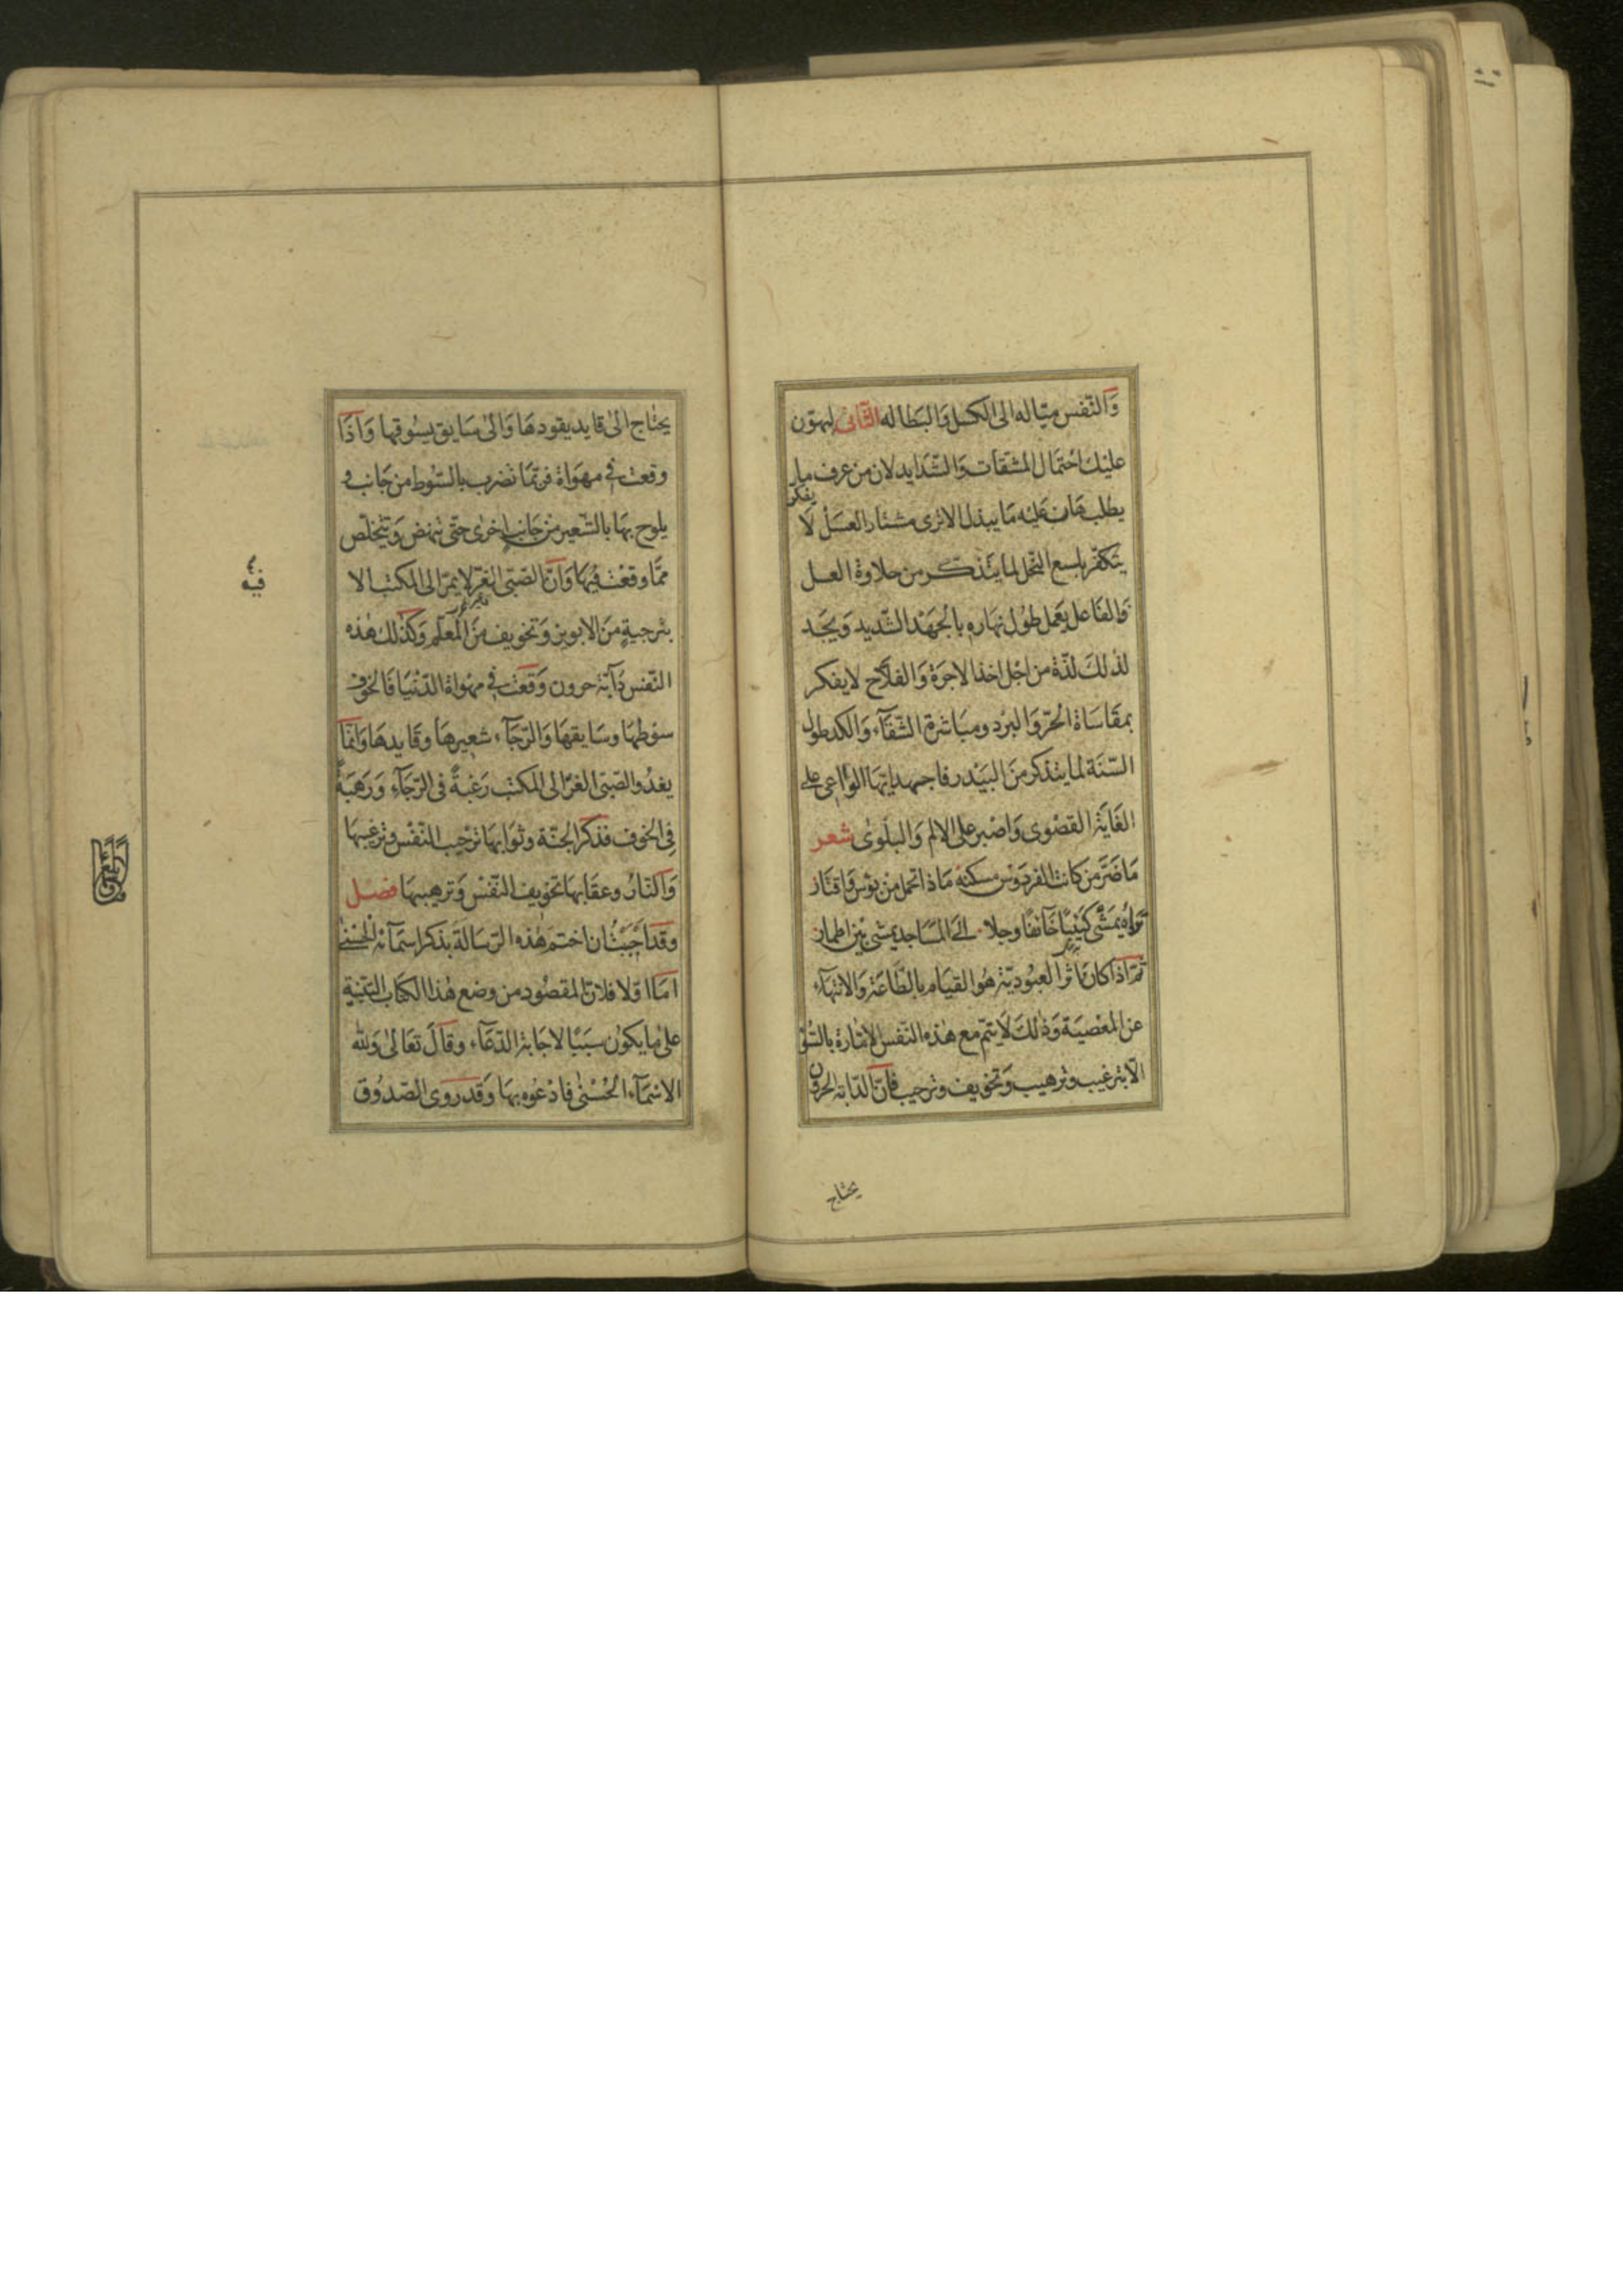 وَالنّفس ميّاله الى الكسل وَالبَطاله الثّانى ليهوّن
عليك احتمال المشقات وَالشّدايد لان من عرف ما
يطلب هان عليه مَا يبذل الا ترى مشتار العسَل لَا يفكر
يتكفّر بلسع النّحل لما يتذكّر من حلاوة العسل
وَالفَاعل يعَمل طوُل نهاره بالجَهْد الشّديد وَيجَد
لذلكَ لذّة من اجْل اخذ الاجرَة وَالفلّاح لا يفكر
بمقَاسَاة الحَرّ وَالبرْد ومبَاشرة الشّقَآء وَالكد طول
السّنَة لما يتذكر منَ البَيْدر فاجهد ايّها الواعى على
الغَاية القصْوى وَاصْبر على الالم وَالبلَوىٰ شعر
مَا ضَرَّ من كانت الفردَوْس مسكنه مَاذا تحمل من بؤس وَاقتار
تَراه يمَشى كَئيبًا خَآئفًا وجلا الىَ المسَاجد يمشى بيْن اطمار
ثمّ اذا كان مَاثر العبُوديّة هُو القيَام بالطّاعَة وَالانتهآء
عن المعْصيَة وَذٰلكَ لَا يتمّ مع هٰذه النّفس الامّارة بالسُّوْ
الّا بترغيب وترهيب وَتخويف وترجيب فَانّ الدّابة الحرون
يحتاج
يحتٰاج الىٰ قايد يقودهَا وَالىٰ سَايق يسُوقها وَاذَا
وقعت فى مهوَاة فربّمَا تضرب بالسّوط من جَانب و
يلوح بهَا بالشّعير من جَانب اخرى حتّى تنهض وَتتخلّص
ممّا وقعْت فيهَا وَانّ الصّبى الغرّ لا يمرّ الى المكتب الا
بترجيةٍ من الابوين وَتخويف منَ المعلّم وَكذٰلك هٰذه
النّفس دَآبّة حرون وَقعت فى مهْواة الدّنْيَا فَالخوْف
سوْطهَا وسَايقهَا وَالرّجَآء شعيرهَا وقَايدهَا وَانّمَا
يغدُو الصّبى الغرّ الى المكتب رَغبةً فى الرّجَآء وَرَهَبَةً
فِى الخوف فذكر الجنّة وثوَابهَا ترجيب النّفْس وترغيبهَا
وَالنّار وعقَابهَا تخويف النّفْس وَترهيبهَا فصْل
وقد احَببْت ان اختم هٰذه الرّسَالة بذكر اسمَآئه الحسْنىٰ
امّا اوّلا فلانّ المقصُود من وضع هٰذا الكتَاب التّنبيه
علىٰ مٰا يكوُن سَببًا لاجَابة الدّعَآء وقَالَ تعَالىٰ وَلله
الاسْمَآء الحُسْنىٰ فادْعُوه بهَا وَقد رَوى الصّدُوق